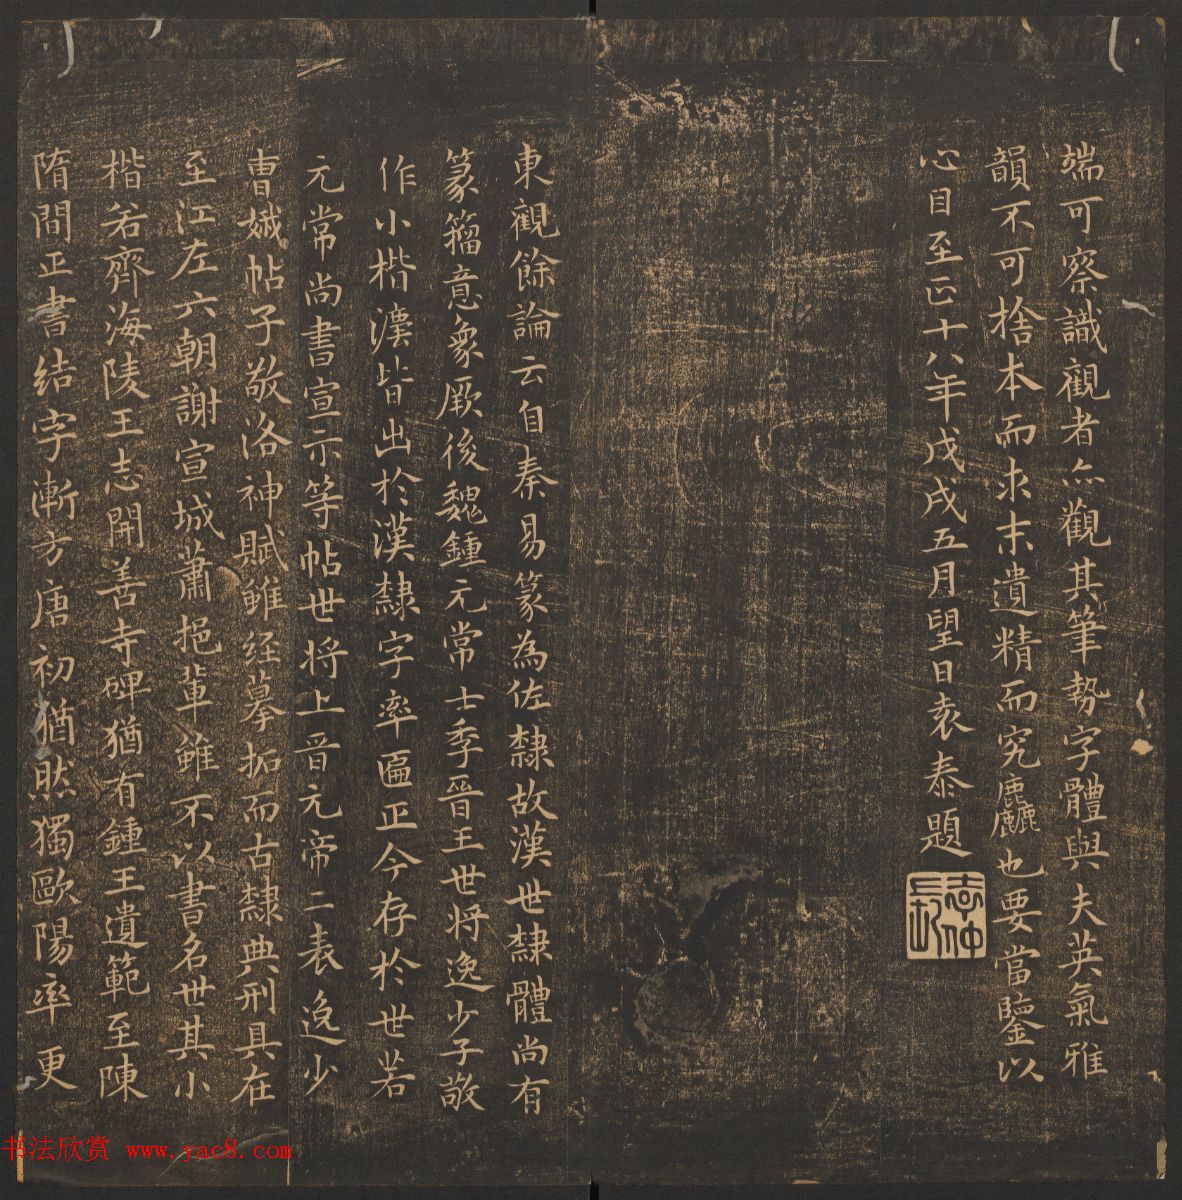 端可察識觀者亦觀其筆勢字體與夫英氣雅
韻不可捨本而求末遺精而究麤也要當鑒以
心目至正十八年戊戌五月望日袁泰題
東觀餘論云自秦易篆為佐隸故漢世隸體尚有
篆籀意象厥後魏鍾元常士季晉王世將逸少子敬
作小楷灋皆出於漢隸字率匾正今存於世若
元常尚書宣示等帖世將上晉元帝二表逸少
曹娥帖子敬洛神賦雖経摹拓而古隸典刑具在
至江左六朝謝宣城蕭挹輩雖不以書名世其小
楷若齊海陵王志開善寺碑猶有鍾王遺範至陳
隋間正書結字漸方唐初猶然獨歐陽率更
书法欣赏 www.yac8.com